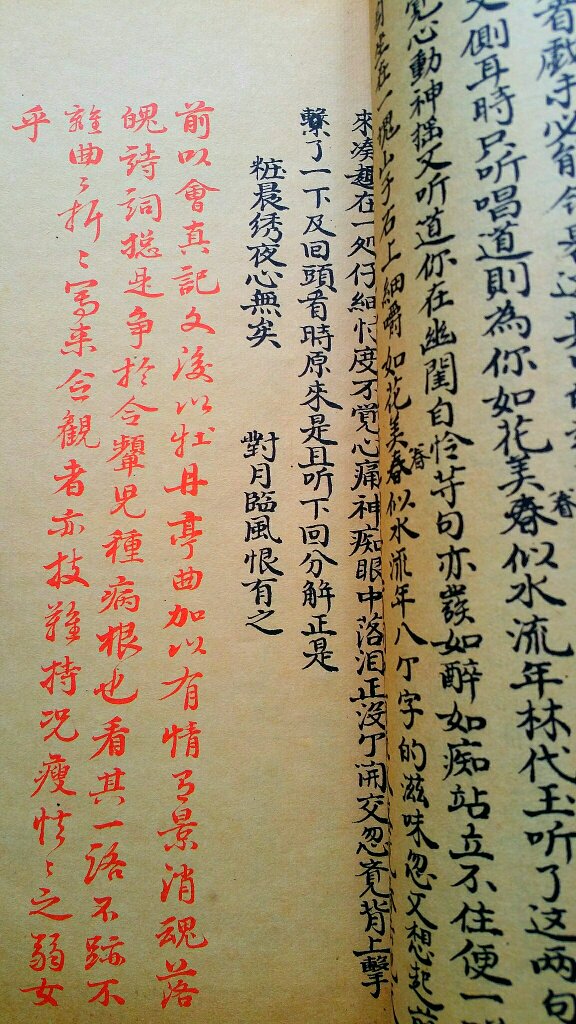 又側耳時只听唱道則為你如花美春似水流年林代玉听了这两句
春
覚心動神摇又听道你在幽闺自怜等句亦發如醉如痴站立不住便一
一塊山子石上細嚼如花美春似水流年八个字的滋味忽又想起
春
來凑趣在一処仔細忖度不覚心痛神痴眼中落泪正没个開交忽竟背上擊
了一下及回頭看時原來是且听下回分解正是
粧晨绣夜心無矣 對月臨風恨有之
前以會真記文後以牡丹亭曲加以有情有景消魂落
魄詩詞摠是争於令顰児種病根也看其一路不跡不
離曲〻折〻寫来令觀者亦技難持况瘦怯〻之弱女
乎